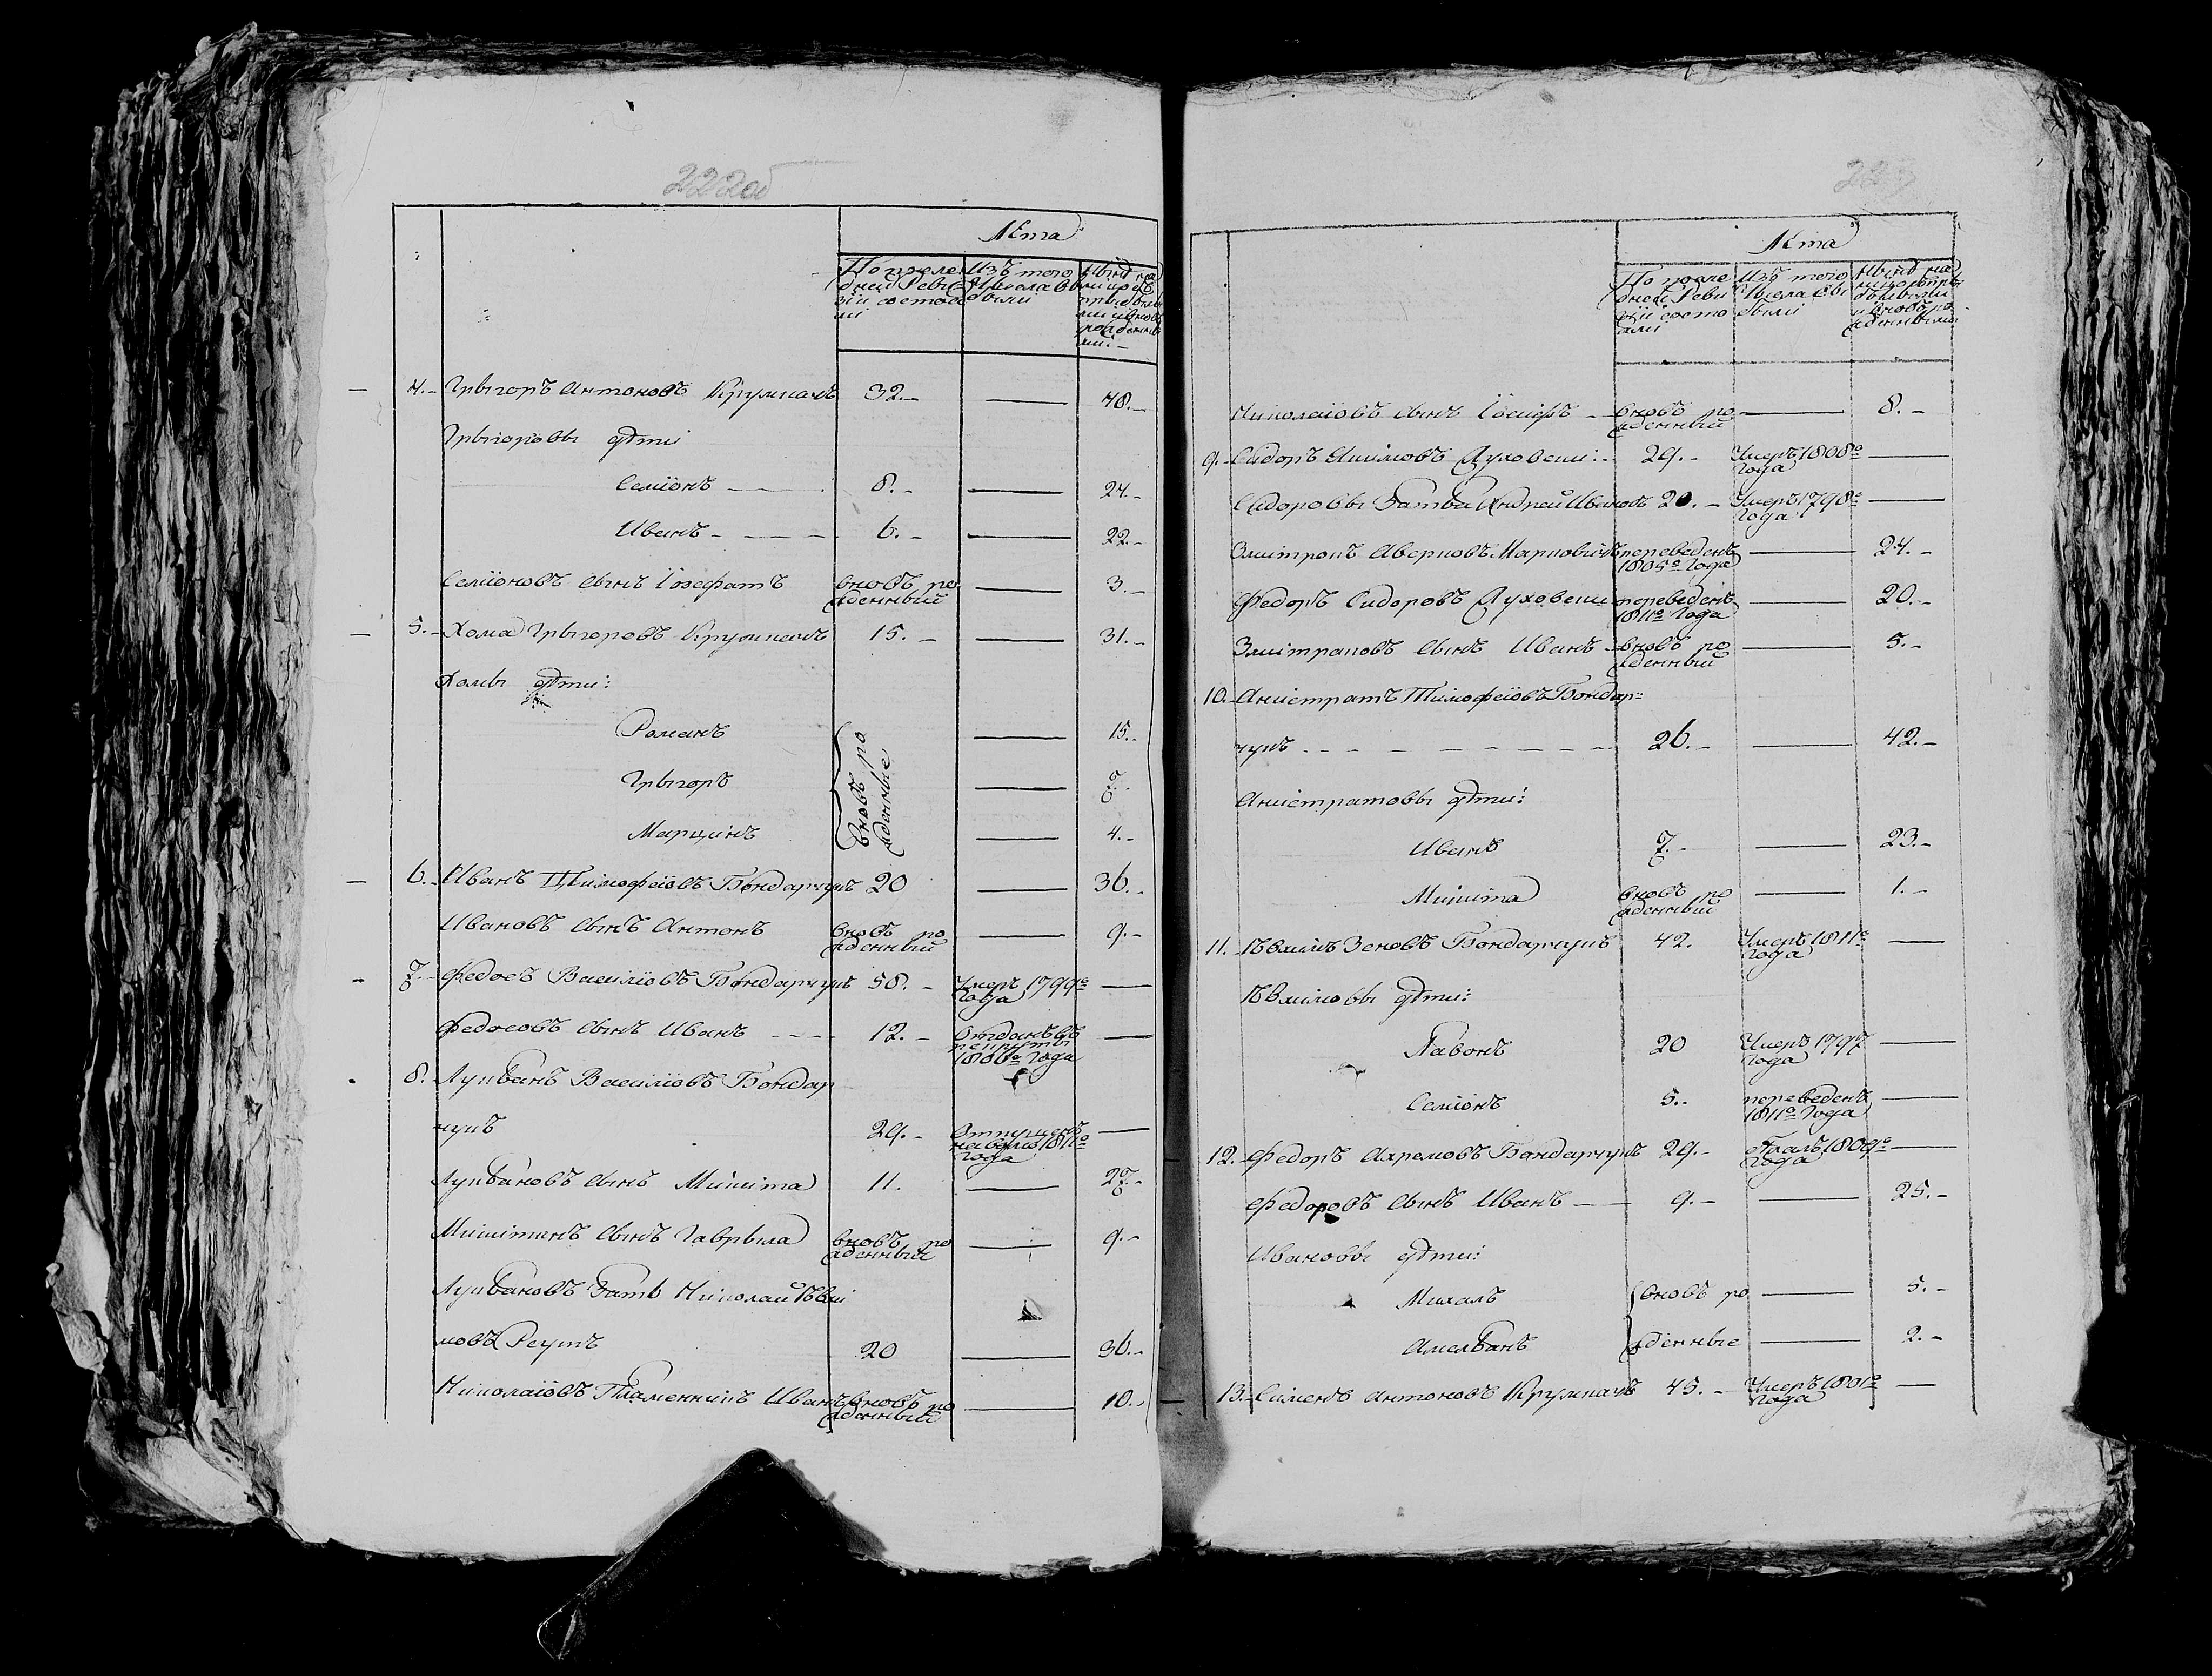 222об
Лѣта
По послѣ Изъ того Нынѣ на
дней Реви числа вы лицо съ
зіи состоя были прибылы
ли ми и вновь
рожденны
ми.
4. Грыгоръ Антоновъ Крумкачъ 32. — 48.
Грыгоровы дѣти
Семіонъ 8. — 24.
Иванъ 6. — 22.
Семіоновъ сынъ Іозефатъ вновь ро — 3.
жденный
5. Хома Грыгоровъ Крумкачъ 15. — 31.
Хомы дѣти:
Романъ вновь ро — 15.
Грыгоръ жденные — 7.
Марцинъ — 4.
6. Иванъ Тимофеіовъ Бондарчукъ 20 — 36.
Ивановъ сынъ Антонъ вновь ро — 9.
жденный
7. Федосъ Василіовъ Бондарчукъ 58. Умеръ 1799го —
года
Федосовъ сынъ Иванъ 12. Отданъ въ —
рекруты
1806го года
8. Лукьянъ Василіовъ Бондар
чукъ 29. Отпущенъ —
на волю 1811го
года
Лукьяновъ сынъ Микита 11. — 27.
Микитинъ сынъ Гаврыла вновь ро — 9.
жденный
Лукьяновъ зять Николай Ѣвхи
мовъ Реутъ 20 — 36.
Николаіовъ Пламенникъ Иванъ вновь ро — 10.
жденный
223
Лѣта
По послѣ Изъ того Нынѣ на
дней Реви числа вы лицо съ при
зіи состо были былыми
яли и вновь ро
жденными
Николаіовъ сынъ Іосифъ вновь ро — 8.
жденный
9. Сидоръ Якимовъ Духовски: 29. Умеръ 1808го —
года
Сидоровы зятья Андрей Ивановъ 20. Умеръ 1798го —
года
Змитрокъ Аверковъ Марковичъ переведенъ — 24.
1805го года
Федоръ Сидоровъ Духовски переведенъ — 20.
1811го года
Змитраковъ сынъ Иванъ вновь ро — 5.
жденный
10. Аникстратъ Тимофеіовъ Бондар
чукъ 26. — 42.
Аникстратовы дѣти:
Иванъ 7. — 23.
Микита вновь ро — 1.
жденный
11. Ѣвхимъ Зеновъ Бондарчукъ 42. Умеръ 1811го —
года
Ѣвхимовы дѣти:
Павонъ 20 Умеръ 1797 —
года
Семіонъ 5. переведенъ —
1811го года
12. Федоръ Ахремовъ Бондарчукъ 29. бѣжалъ 1809го —
года
Федоровъ сынъ Иванъ 9. — 25.
Ивановы дѣти:
Михалъ вновь ро — 5.
Амельянъ жденные — 2.
13. Сименъ Антоновъ Крумкачъ 45. Умеръ 1801го —
года